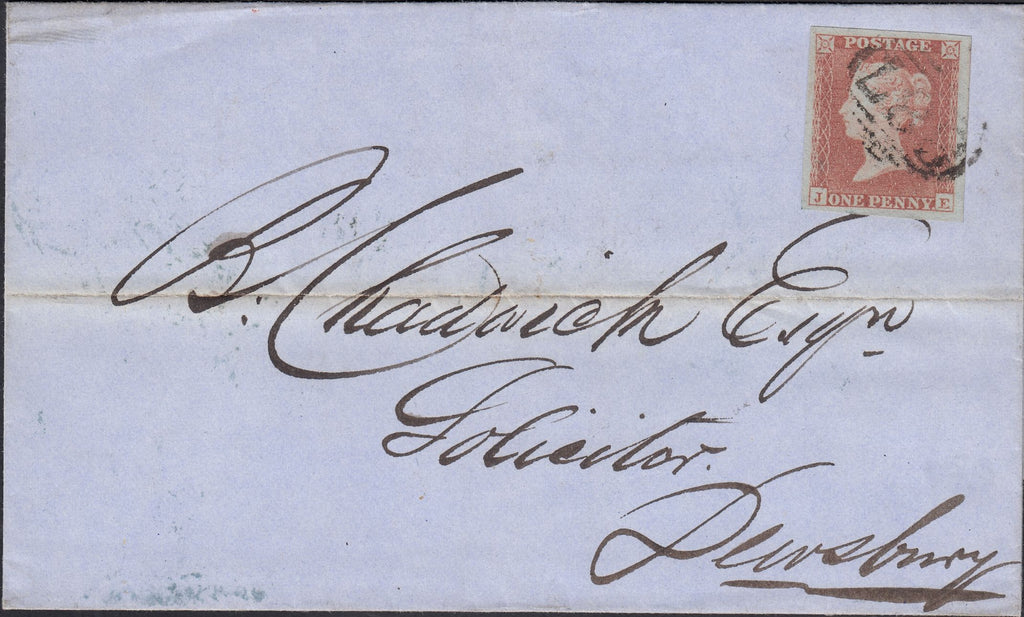 POSTAGE
J ONE PENNY E
B. Chadwick Esqr
Solicitor.
Dewsbury